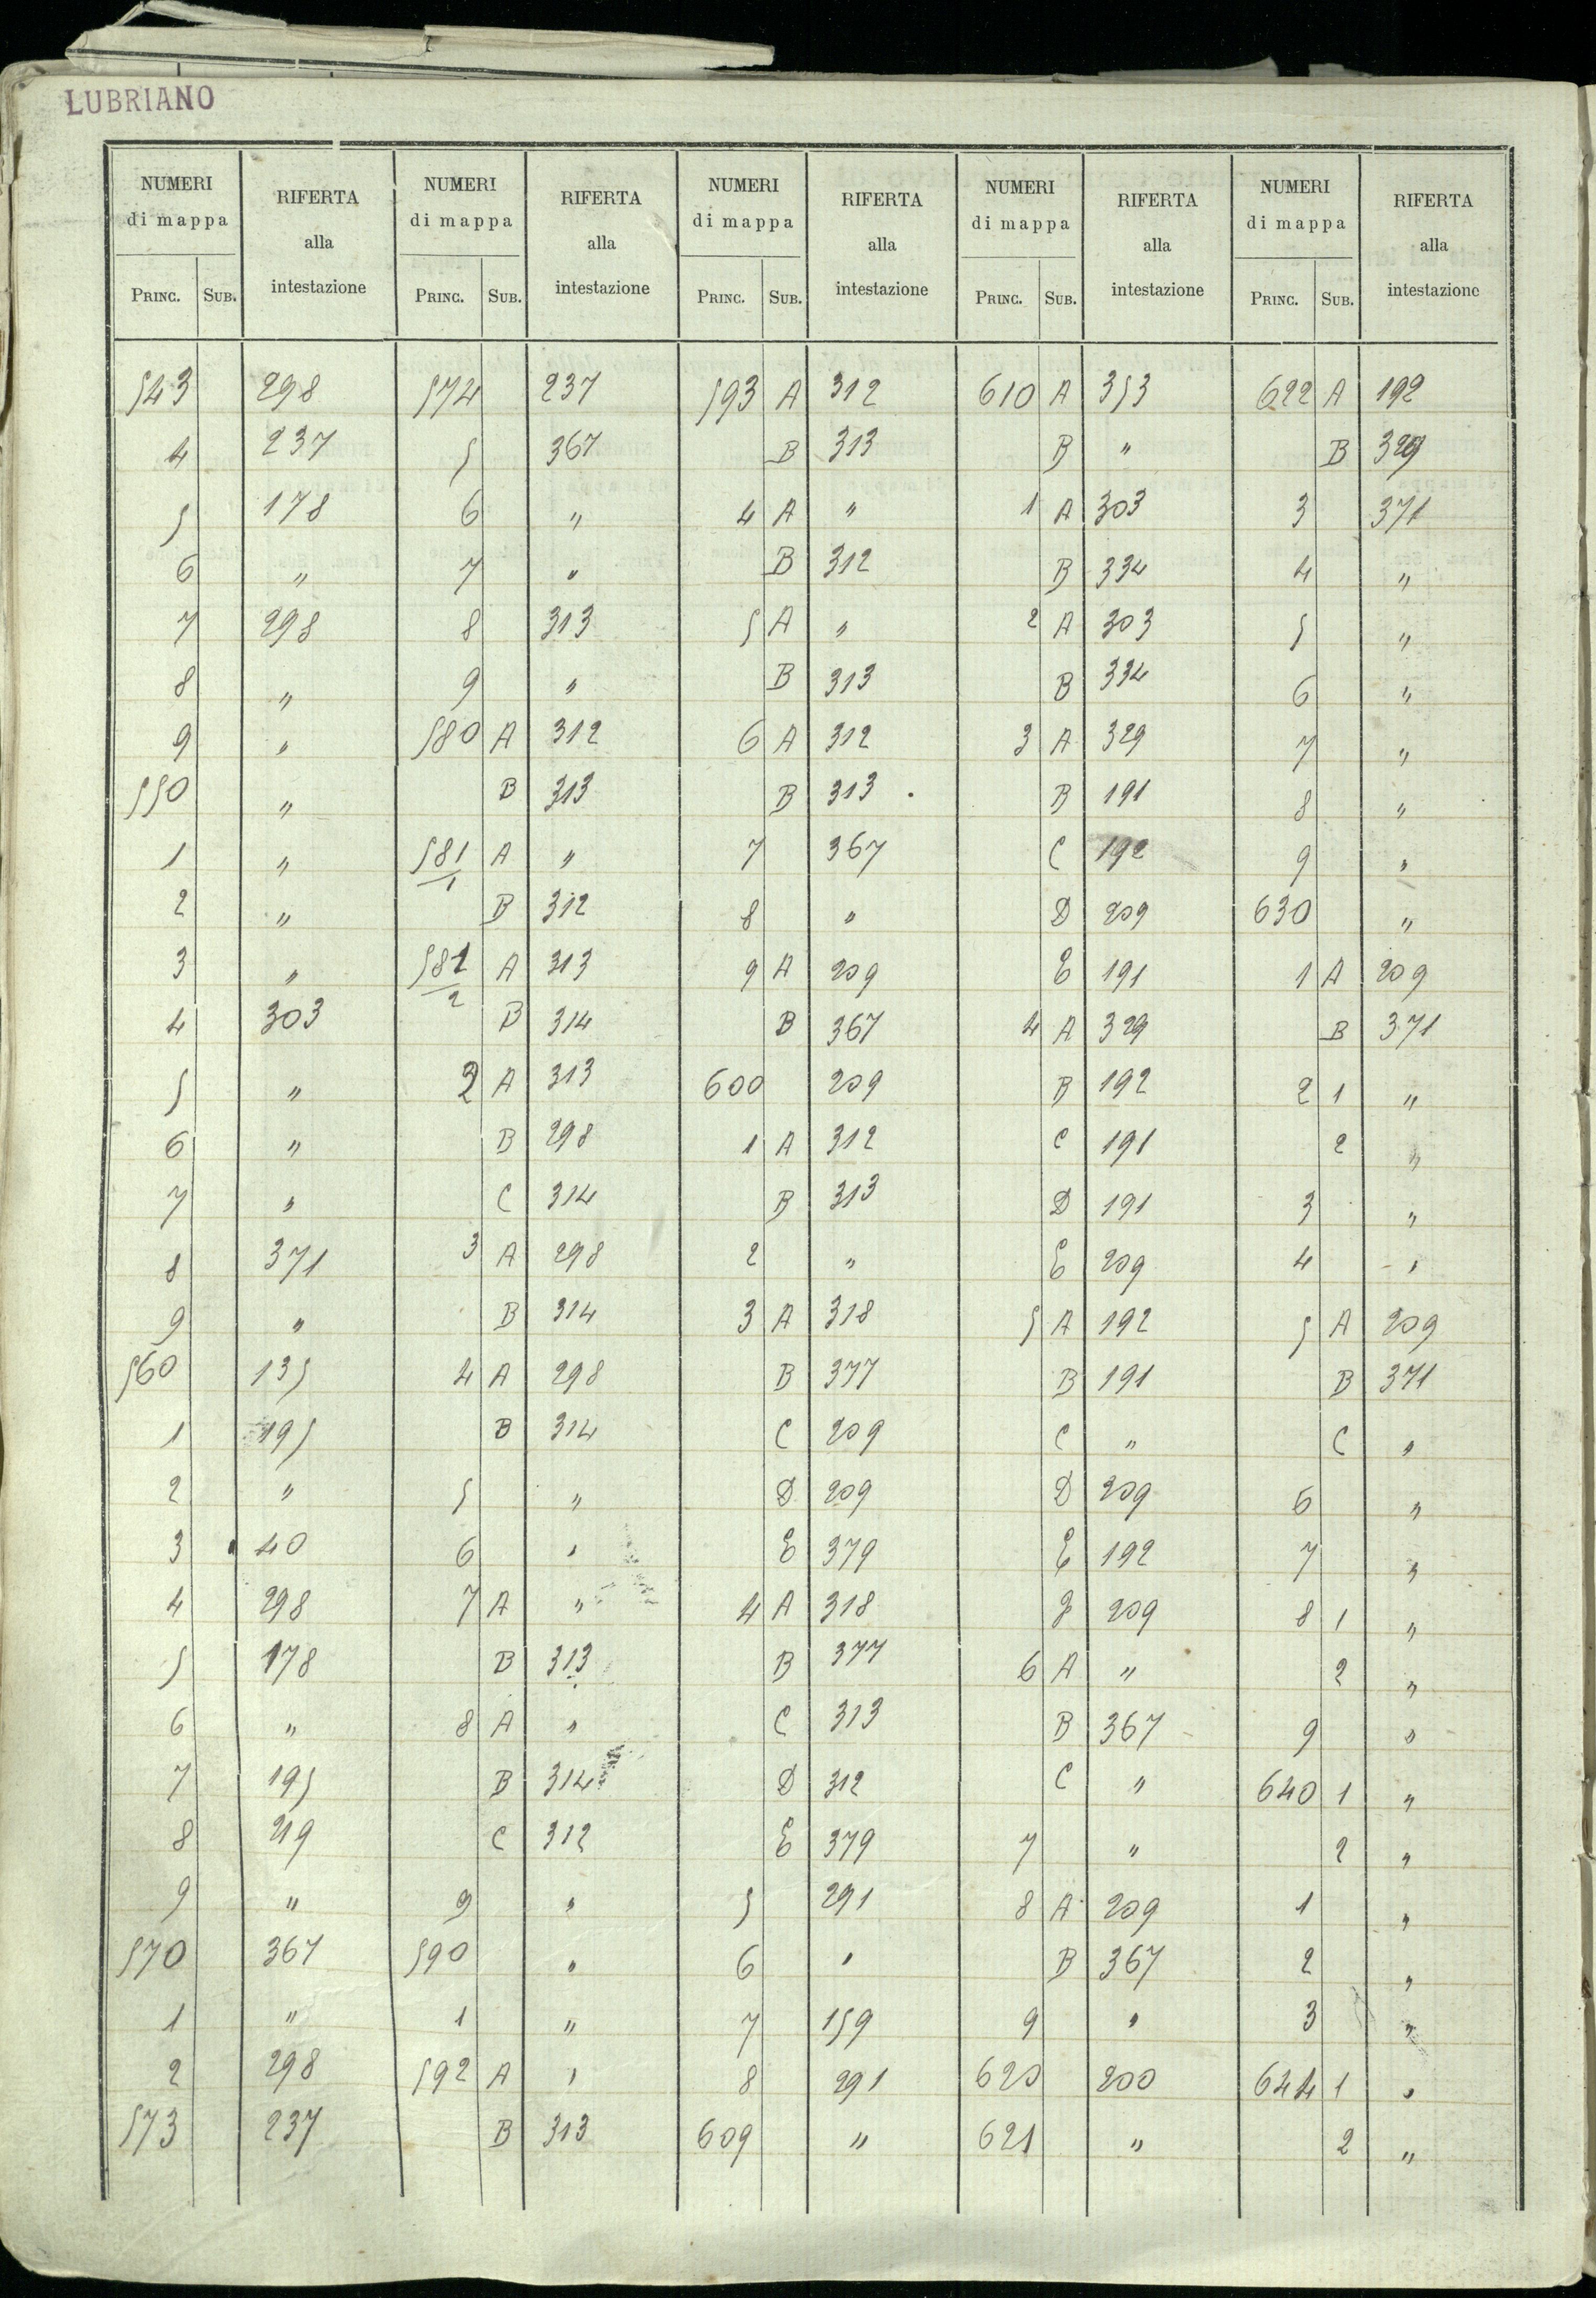 LUBRIANO
NUMERI di mappa RIFERTA alla intestazione NUMERI di mappa RIFERTA alla intestazione NUMERI di mappa RIFERTA alla intestazione NUMERI di mappa RIFERTA alla intestazione NUMERI di mappa RIFERTA alla intestazione
PRINC. SUB. PRINC. SUB. PRINC. SUB. PRINC. SUB. PRINC. SUB.
543 298 574 237 593 A 312 610 A 353 622 A 192
4 237 5 367 B 313 B " B 329
5 178 6 " 4 A " 1 A 303 3 371
6 " 7 " B 312 B 334 4 "
7 298 8 313 5 A " 2 A 303 5 "
8 " 9 " B 313 B 334 6 "
9 " 580 A 312 6 A 312 3 A 329 7 "
550 " B 313 B 313 B 191 8 "
1 " 581/1 A " 7 367 C 192 9 "
2 " B 312 8 " D 209 630 "
3 " 581/2 A 313 9 A 209 E 191 1 A 209
4 303 B 314 B 367 4 A 329 B 371
5 " 2 A 313 600 209 B 192 2 1 "
6 " B 298 1 A 312 C 191 2 "
7 " C 314 B 313 D 191 3 "
8 371 3 A 298 2 " E 209 4 "
9 " B 314 3 A 318 5 A 192 5 A 209
560 135 4 A 298 B 377 B 191 B 371
1 195 B 314 C 209 C " C "
2 " 5 " D 209 D 209 6 "
3 40 6 " E 379 E 192 7 "
4 298 7 A " 4 A 318 209 8 1 "
5 178 B 313 B 377 6 A " 2 "
6 " 8 A " C 313 B 367 9 "
7 195 B 314 D 312 C " 640 1 "
8 219 C 312 E 379 7 " 2 "
9 " 9 " 5 291 8 A 209 1 "
570 367 590 " 6 " B 367 2 "
1 " 1 " 7 159 9 " 3 "
2 298 592 A " 8 291 620 200 644 1 "
573 237 B 313 609 " 621 " 2 "